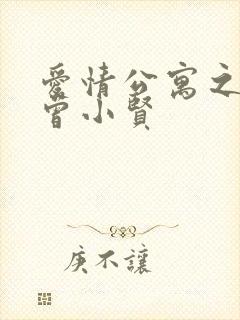 愛情公寓之
曾小賢
庚不讓